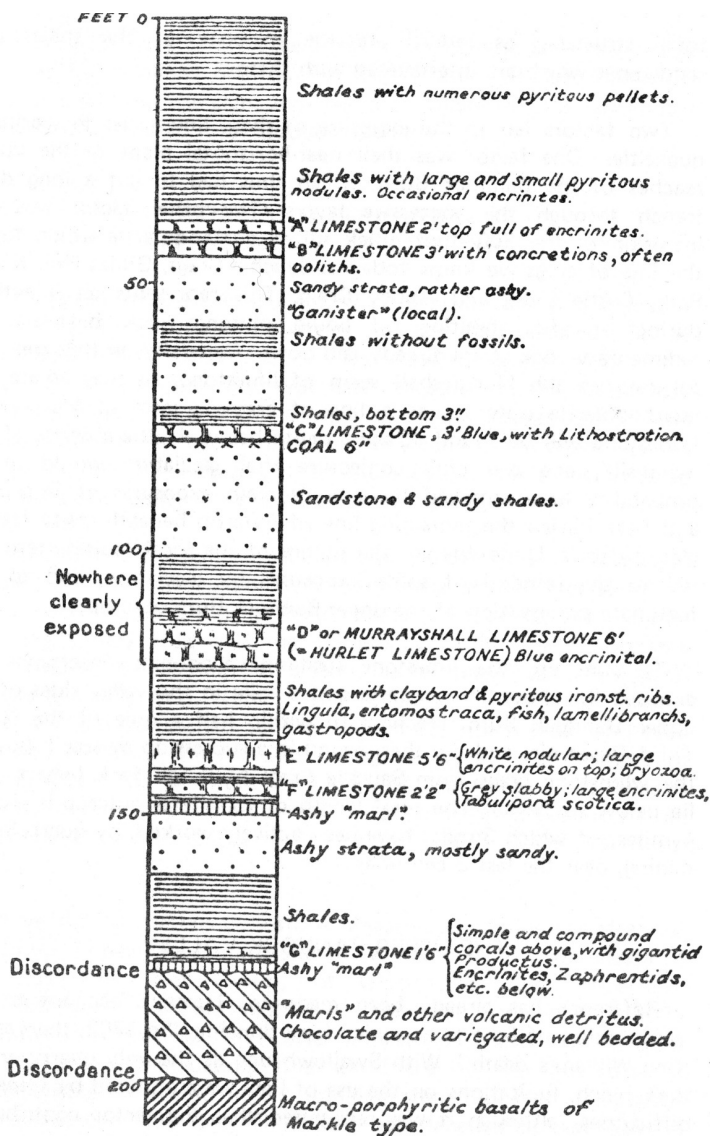 FEET 0
Shales with numerous pyritous pellets.
Shales with large and small pyritous
nodules. Occasional encrinites.
"A" LIMESTONE 2' top full of encrinites.
"B" LIMESTONE 3' with concretions, often
ooliths.
50
Sandy strata, rather ashy.
"Ganister" (local).
Shales without fossils.
Shales, bottom 3".
"C" LIMESTONE, 3' Blue, with Lithostrotion.
COAL 6"
Sandstone & sandy shales.
100
Nowhere
clearly
exposed
"D" or MURRAYSHALL LIMESTONE 6'
(= HURLET LIMESTONE) Blue encrinital.
Shales with clayband & pyritous ironst. ribs.
Lingula, entomostraca, fish, lamellibranchs,
gastropods.
"E" LIMESTONE 5'6" - White nodular; large
encrinites on top; bryozoa.
"F" LIMESTONE 2'2" Grey slabby; large encrinites,
Tabulipora scotica.
150
Ashy "marl".
Ashy strata, mostly sandy.
Shales.
"G" LIMESTONE 1'6"
Simple and compound
corals above, with gigantid
Productus.
Encrinites, Zaphrentids,
etc. below.
Discordance
Ashy "marl"
"Marls" and other volcanic detritus.
Chocolate and variegated, well bedded.
Discordance
200
Macro-porphyritic basalts of
Markle type.